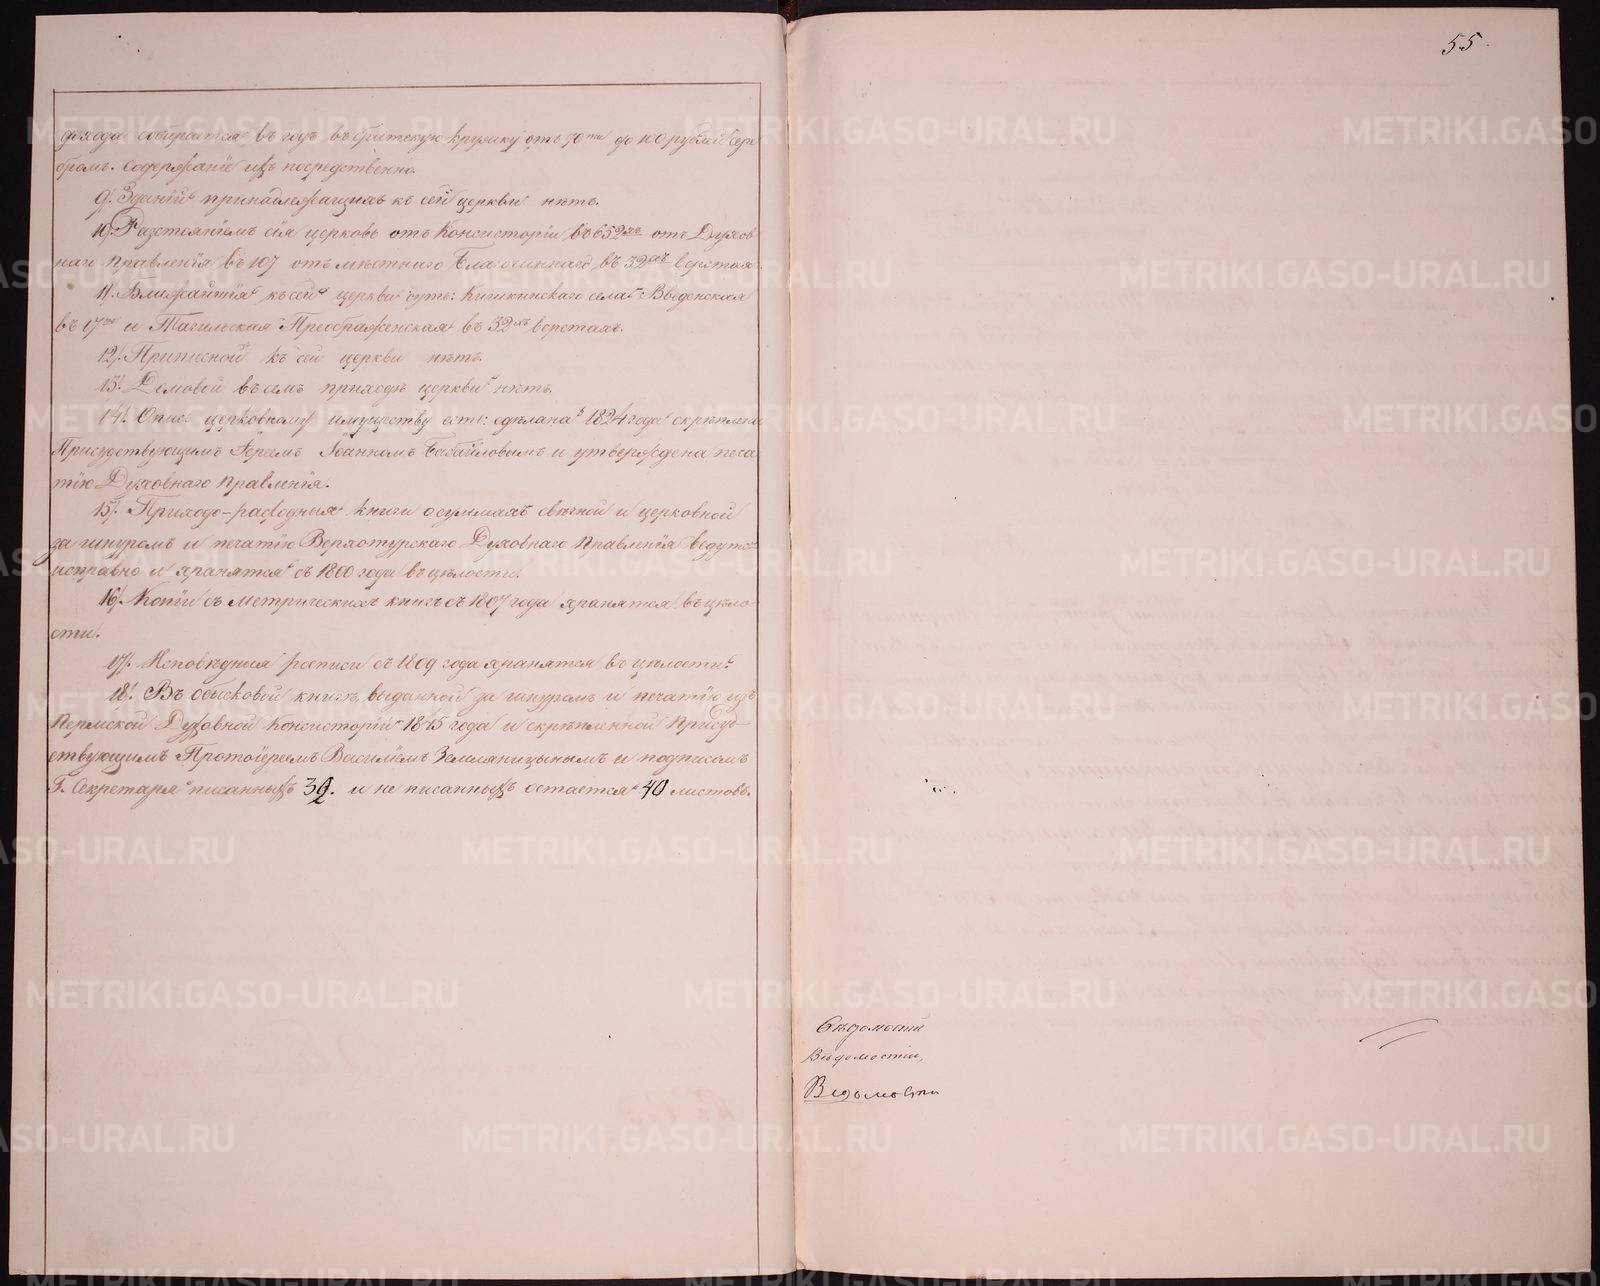 дохода собирается въ годъ въ братскую кружку отъ 70ти до 100 рублей сере
бромъ. Содержаніе ихъ посредственно.
9/. Зданій принадлежащихъ къ сей церкви нѣтъ.
10/. Разстояніемъ сія церковь отъ Консисторіи въ 652хъ отъ Духов
наго Правленія въ 107 отъ мѣстнаго Благочиннаго въ 32хъ верстахъ.
11/. Ближайшія къ сей церкви суть: Кишкинскаго села Введенская
въ 17ти и Тагильская Преображенская въ 32хъ верстахъ.
12/. Приписной къ сей церкви нѣтъ.
13/. Домовой въ семъ приходѣ церкви нѣтъ.
14/. Опись церковному имуществу есть: сдѣлана 1824 года скрѣплена
Присудствующимъ Іереемъ Іоанномъ и утверждена печа
тію Духовнаго Правленія.
15/. Приходо-расходныя книги о суммахъ свѣчной и церковной
за шнуромъ и печатію Верхотурскаго Духовнаго Правленія ведутся
исправно и хранятся съ 1800 года въ цѣлости.
16/. Копіи съ метрическихъ книгъ съ 1807 года хранятся въ цѣло
сти.
17/. Исповѣдныя росписи съ 1809 года хранятся въ цѣлости.
18/. Въ обысковой книгѣ, выданной за шнуромъ и печатію изъ
Пермской Духовной Консисторіи 1845 года и скрѣпленной Присуд
ствующимъ Протоіереемъ Василіемъ Земляницынымъ и подписомъ
Г. Секретаря писанныхъ и не писанныхъ остается 40 листовъ.
55.
Вѣдомости
Вѣдомости,
Ведомости
METRIKI.GASO-URAL.RU